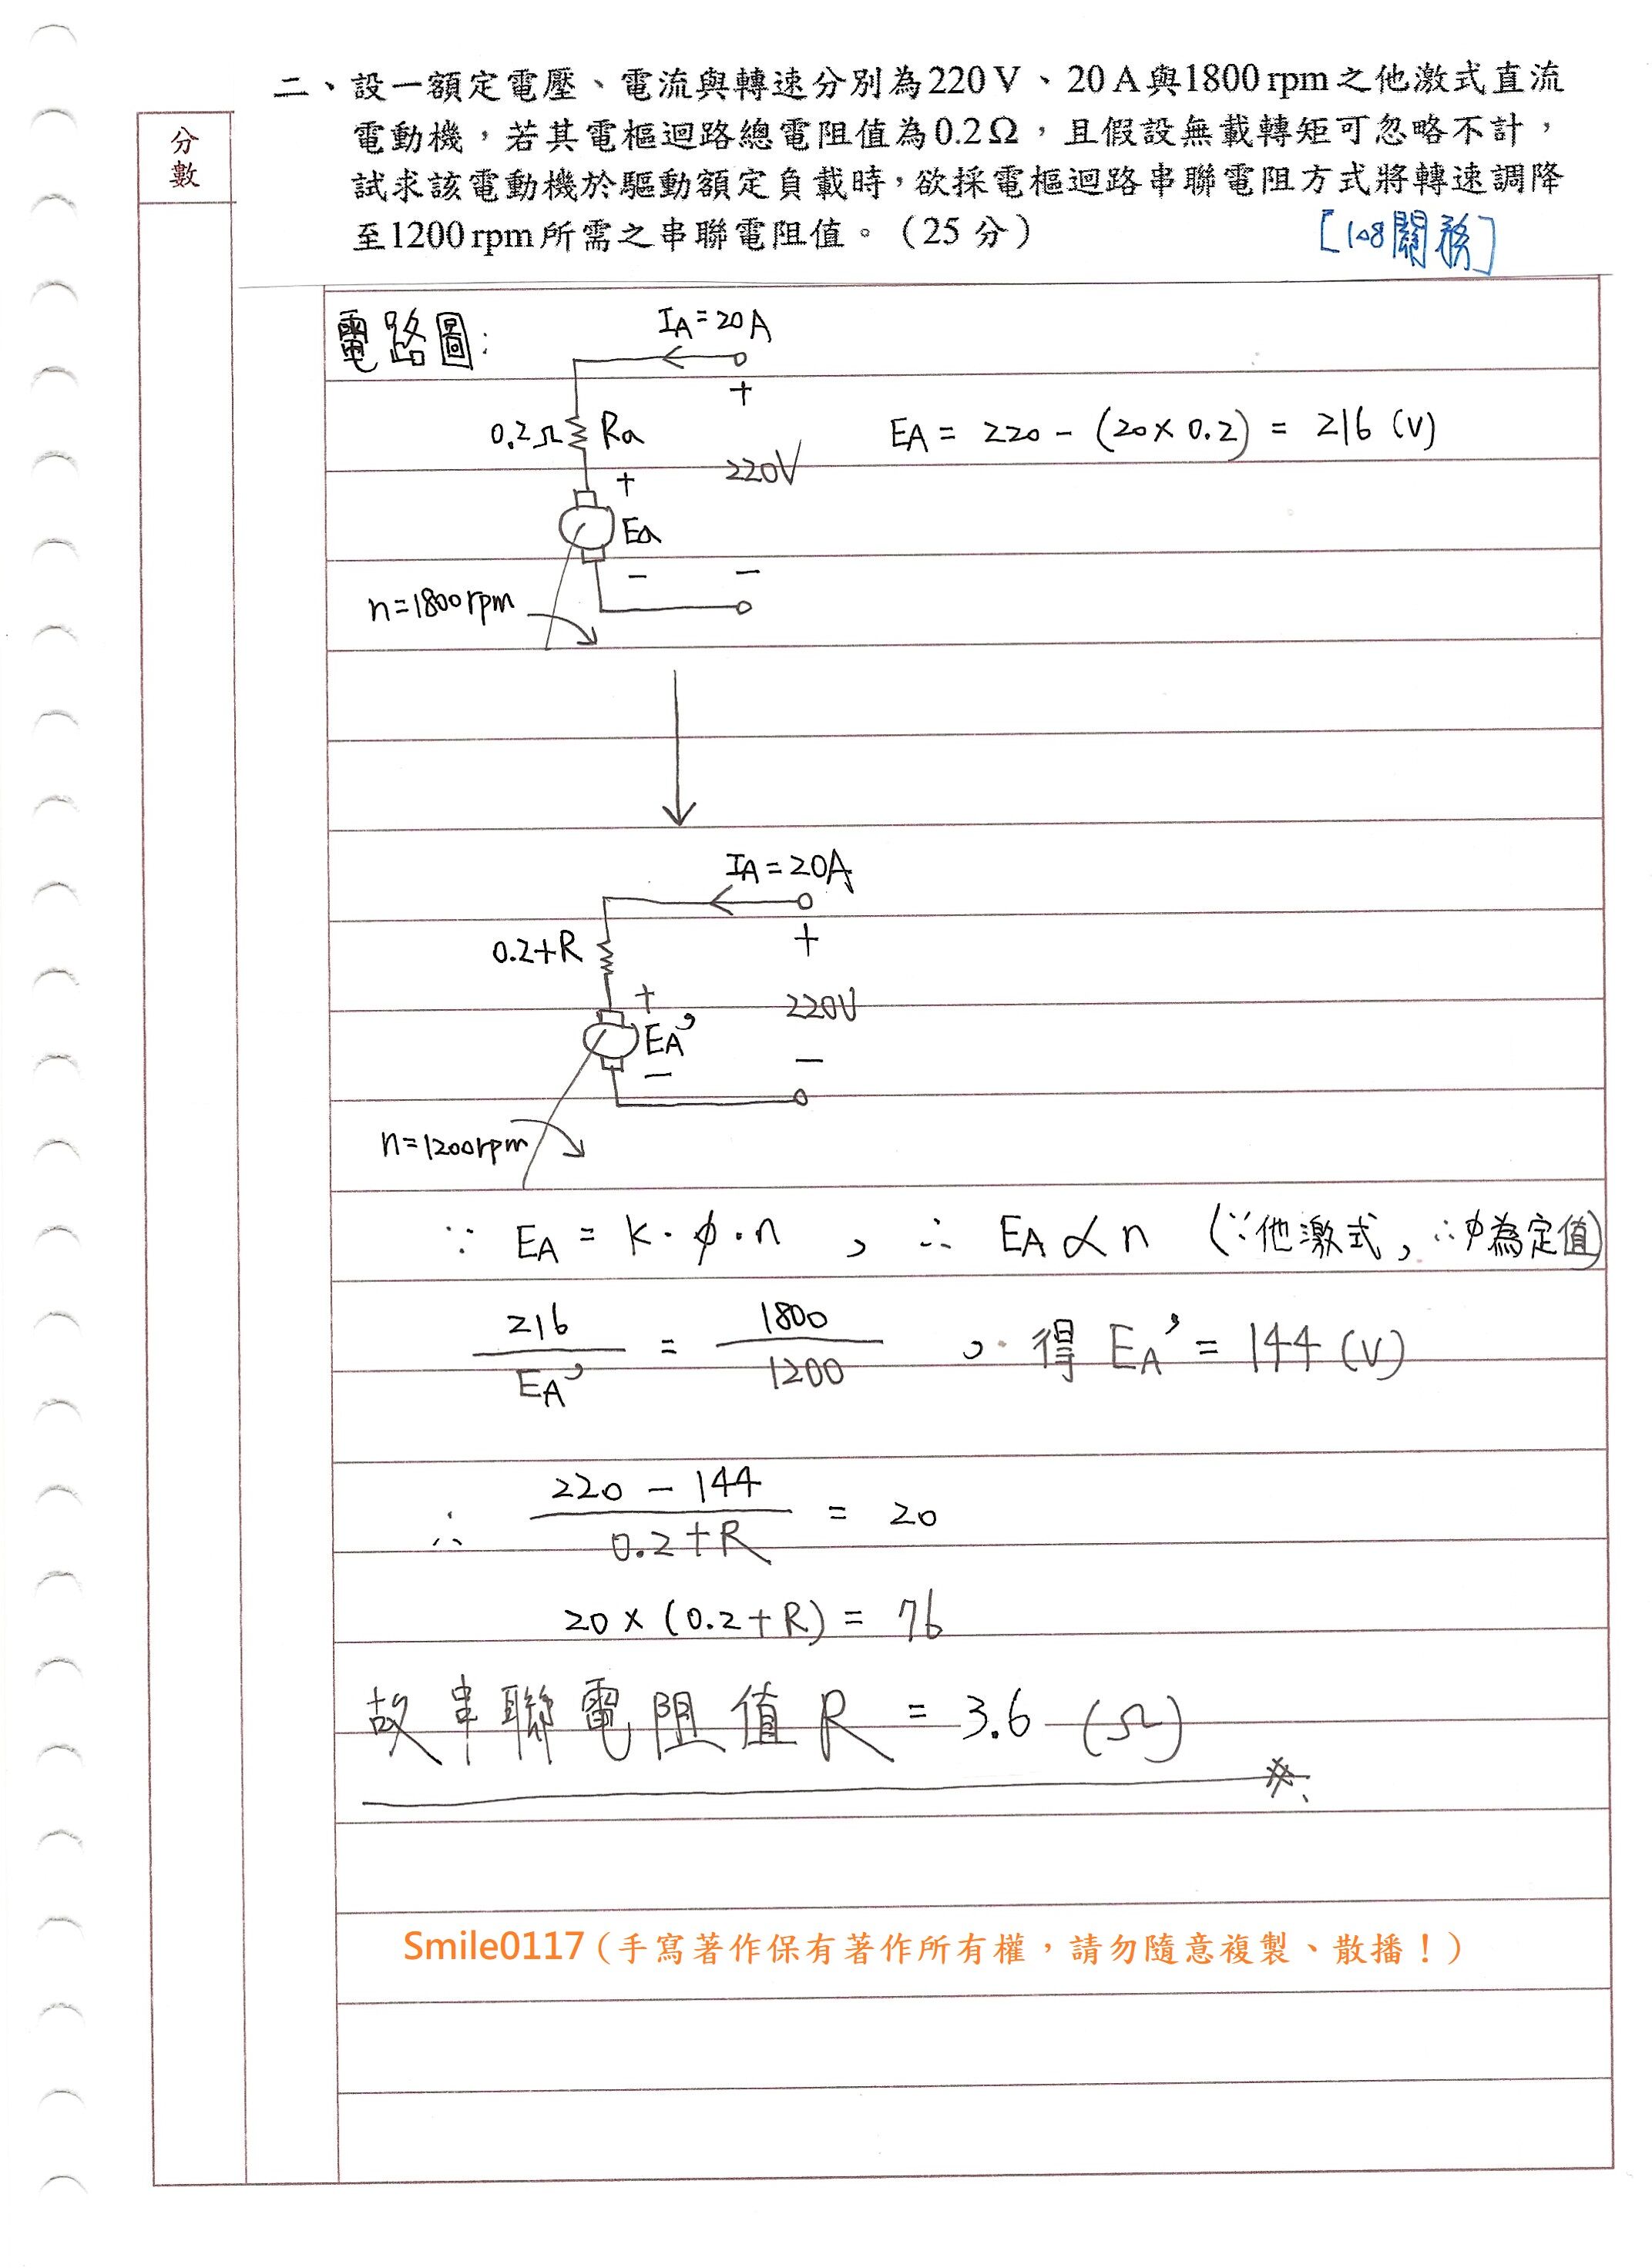 二、設一額定電壓、電流與轉速分別為220 V、20 A與1800 rpm之他激式直流
電動機，若其電樞迴路總電阻值為0.2 Ω，且假設無載轉矩可忽略不計，
試求該電動機於驅動額定負載時，欲採電樞迴路串聯電阻方式將轉速調降
至1200 rpm所需之串聯電阻值。（25 分）
[108關務]
分
數
電路圖：
IA = 20A
+
0.2Ω Ra
EA = 220 - (20 × 0.2) = 216 (V)
220V
+
Ea
- -
n=1800rpm
IA = 20A
0.2+R
+
+
220V
EA'
- -
n=1200rpm
∵ EA = K · φ · n , ∴ EA ∝ n (∵他激式, ∴φ為定值)
216 / EA' = 1800 / 1200 , 得 EA' = 144 (V)
∴ 220 - 144 / 0.2+R = 20
20 × (0.2+R) = 76
故串聯電阻值R = 3.6 (Ω)
Smile0117（手寫著作保有著作所有權，請勿隨意複製、散播！）